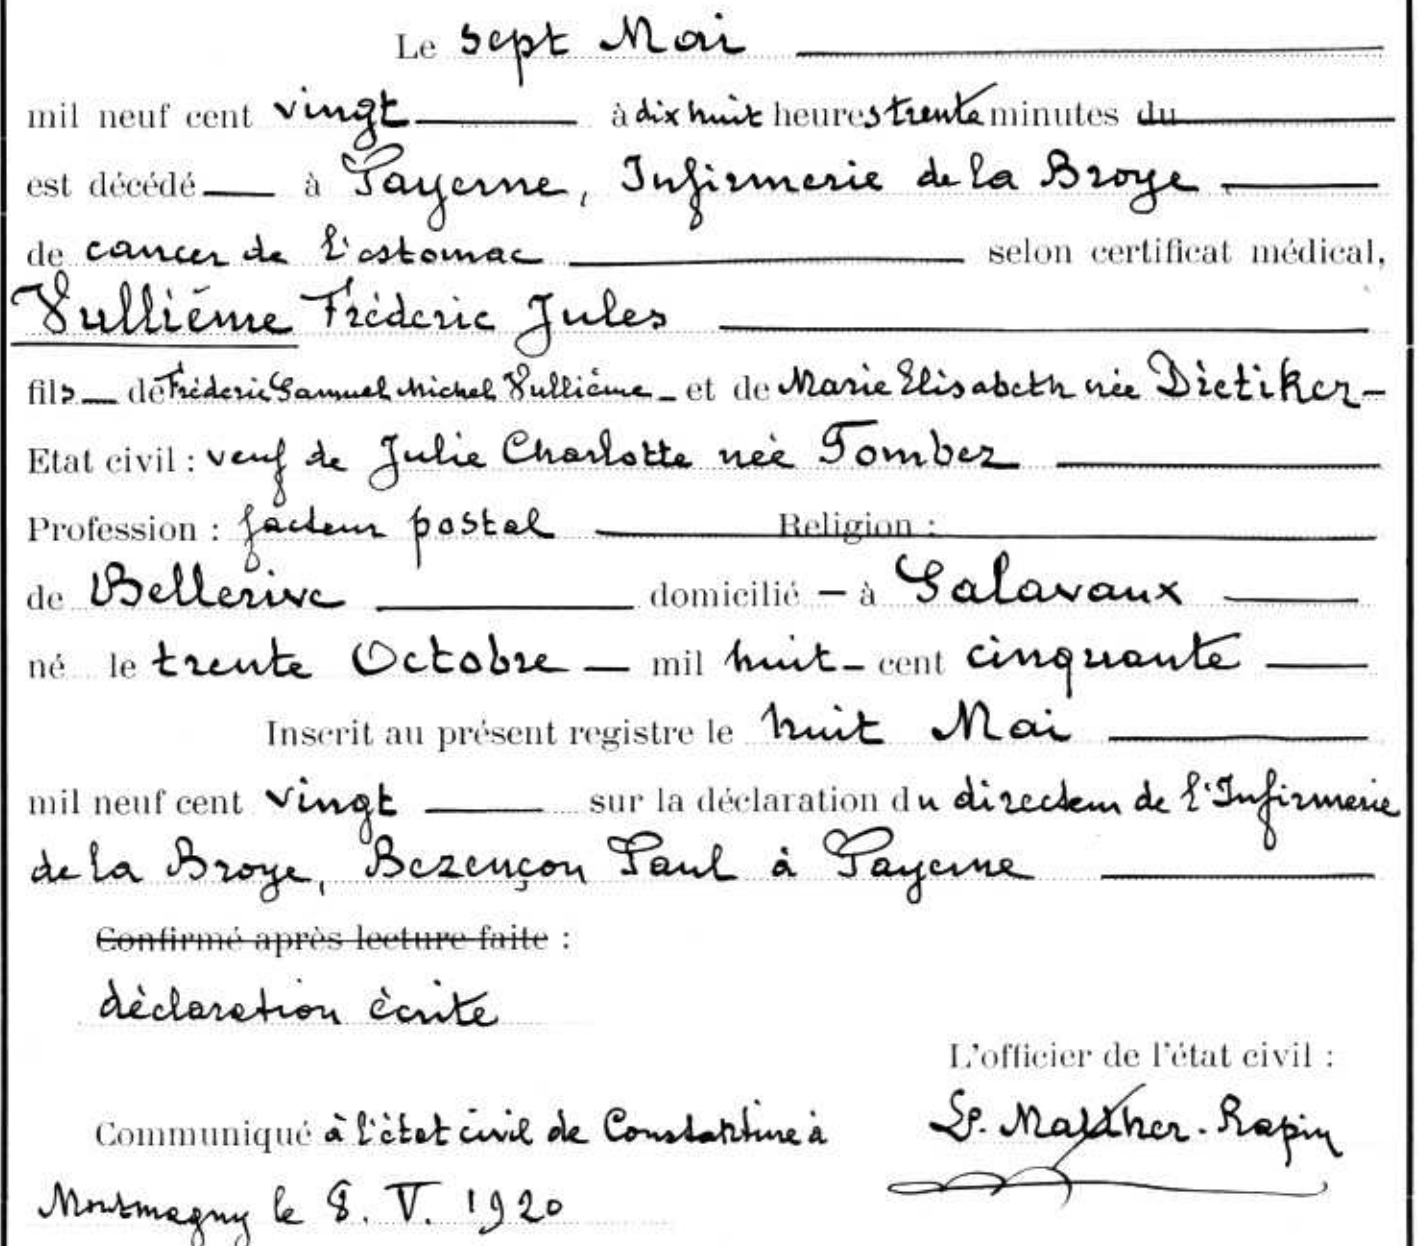 Le sept Mai
mil neuf cent vingt à dix huit heures trente minutes du
est décédé à Payerne, Infirmerie de la Broye
de cancer de l'estomac selon certificat médical,
Vulliême Frédéric Jules
fils de Frédéric Samuel Michel Vulliême et de Marie Elisabeth née Dietiker
Etat civil : veuf de Julie Charlotte née Tombez
Profession : facteur postal Religion :
de Bellerive domicilié à Salavaux
né le trente Octobre mil huit cent cinquante
Inscrit au présent registre le huit Mai
mil neuf cent vingt sur la déclaration du directeur de l'Infirmerie
de la Broye, Bezençon Paul à Payerne
Confirmé après lecture faite :
déclaration écrite
L'officier de l'état civil :
Communiqué à l'état civil de Constantine à Rapin
Montmagny le 8. V. 1920